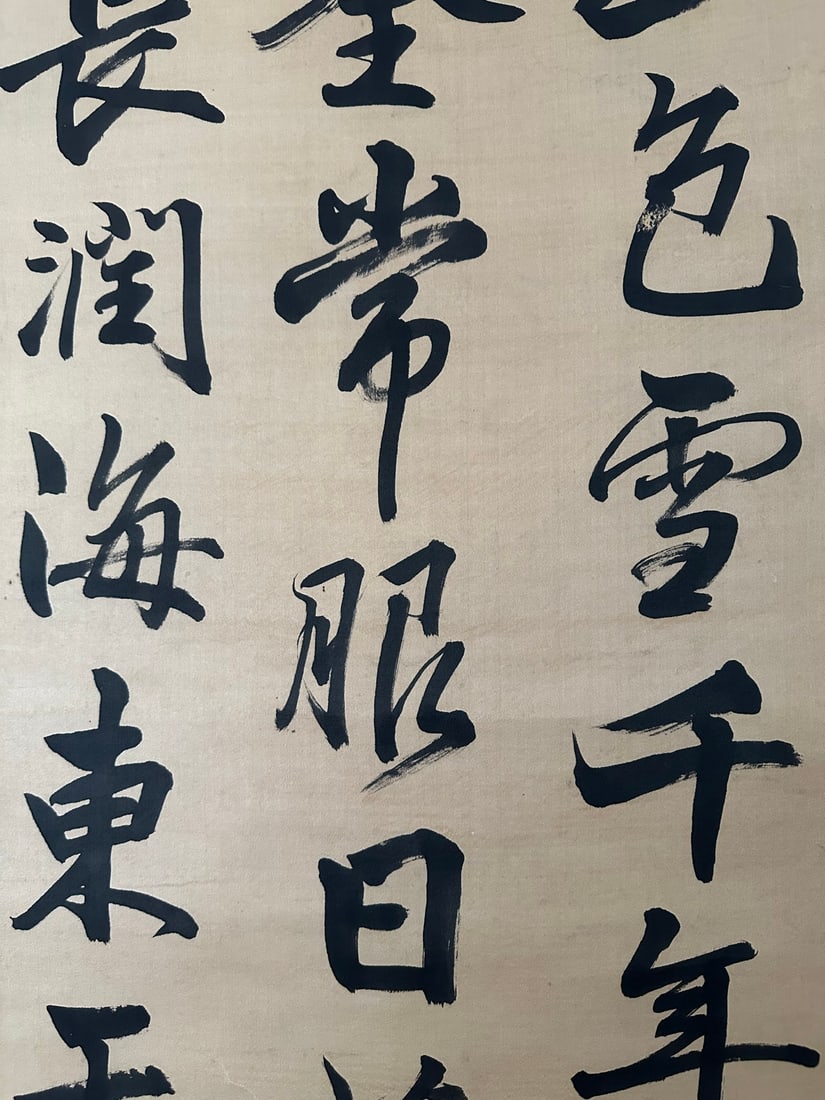 色雪千年
常服日
長潤海東